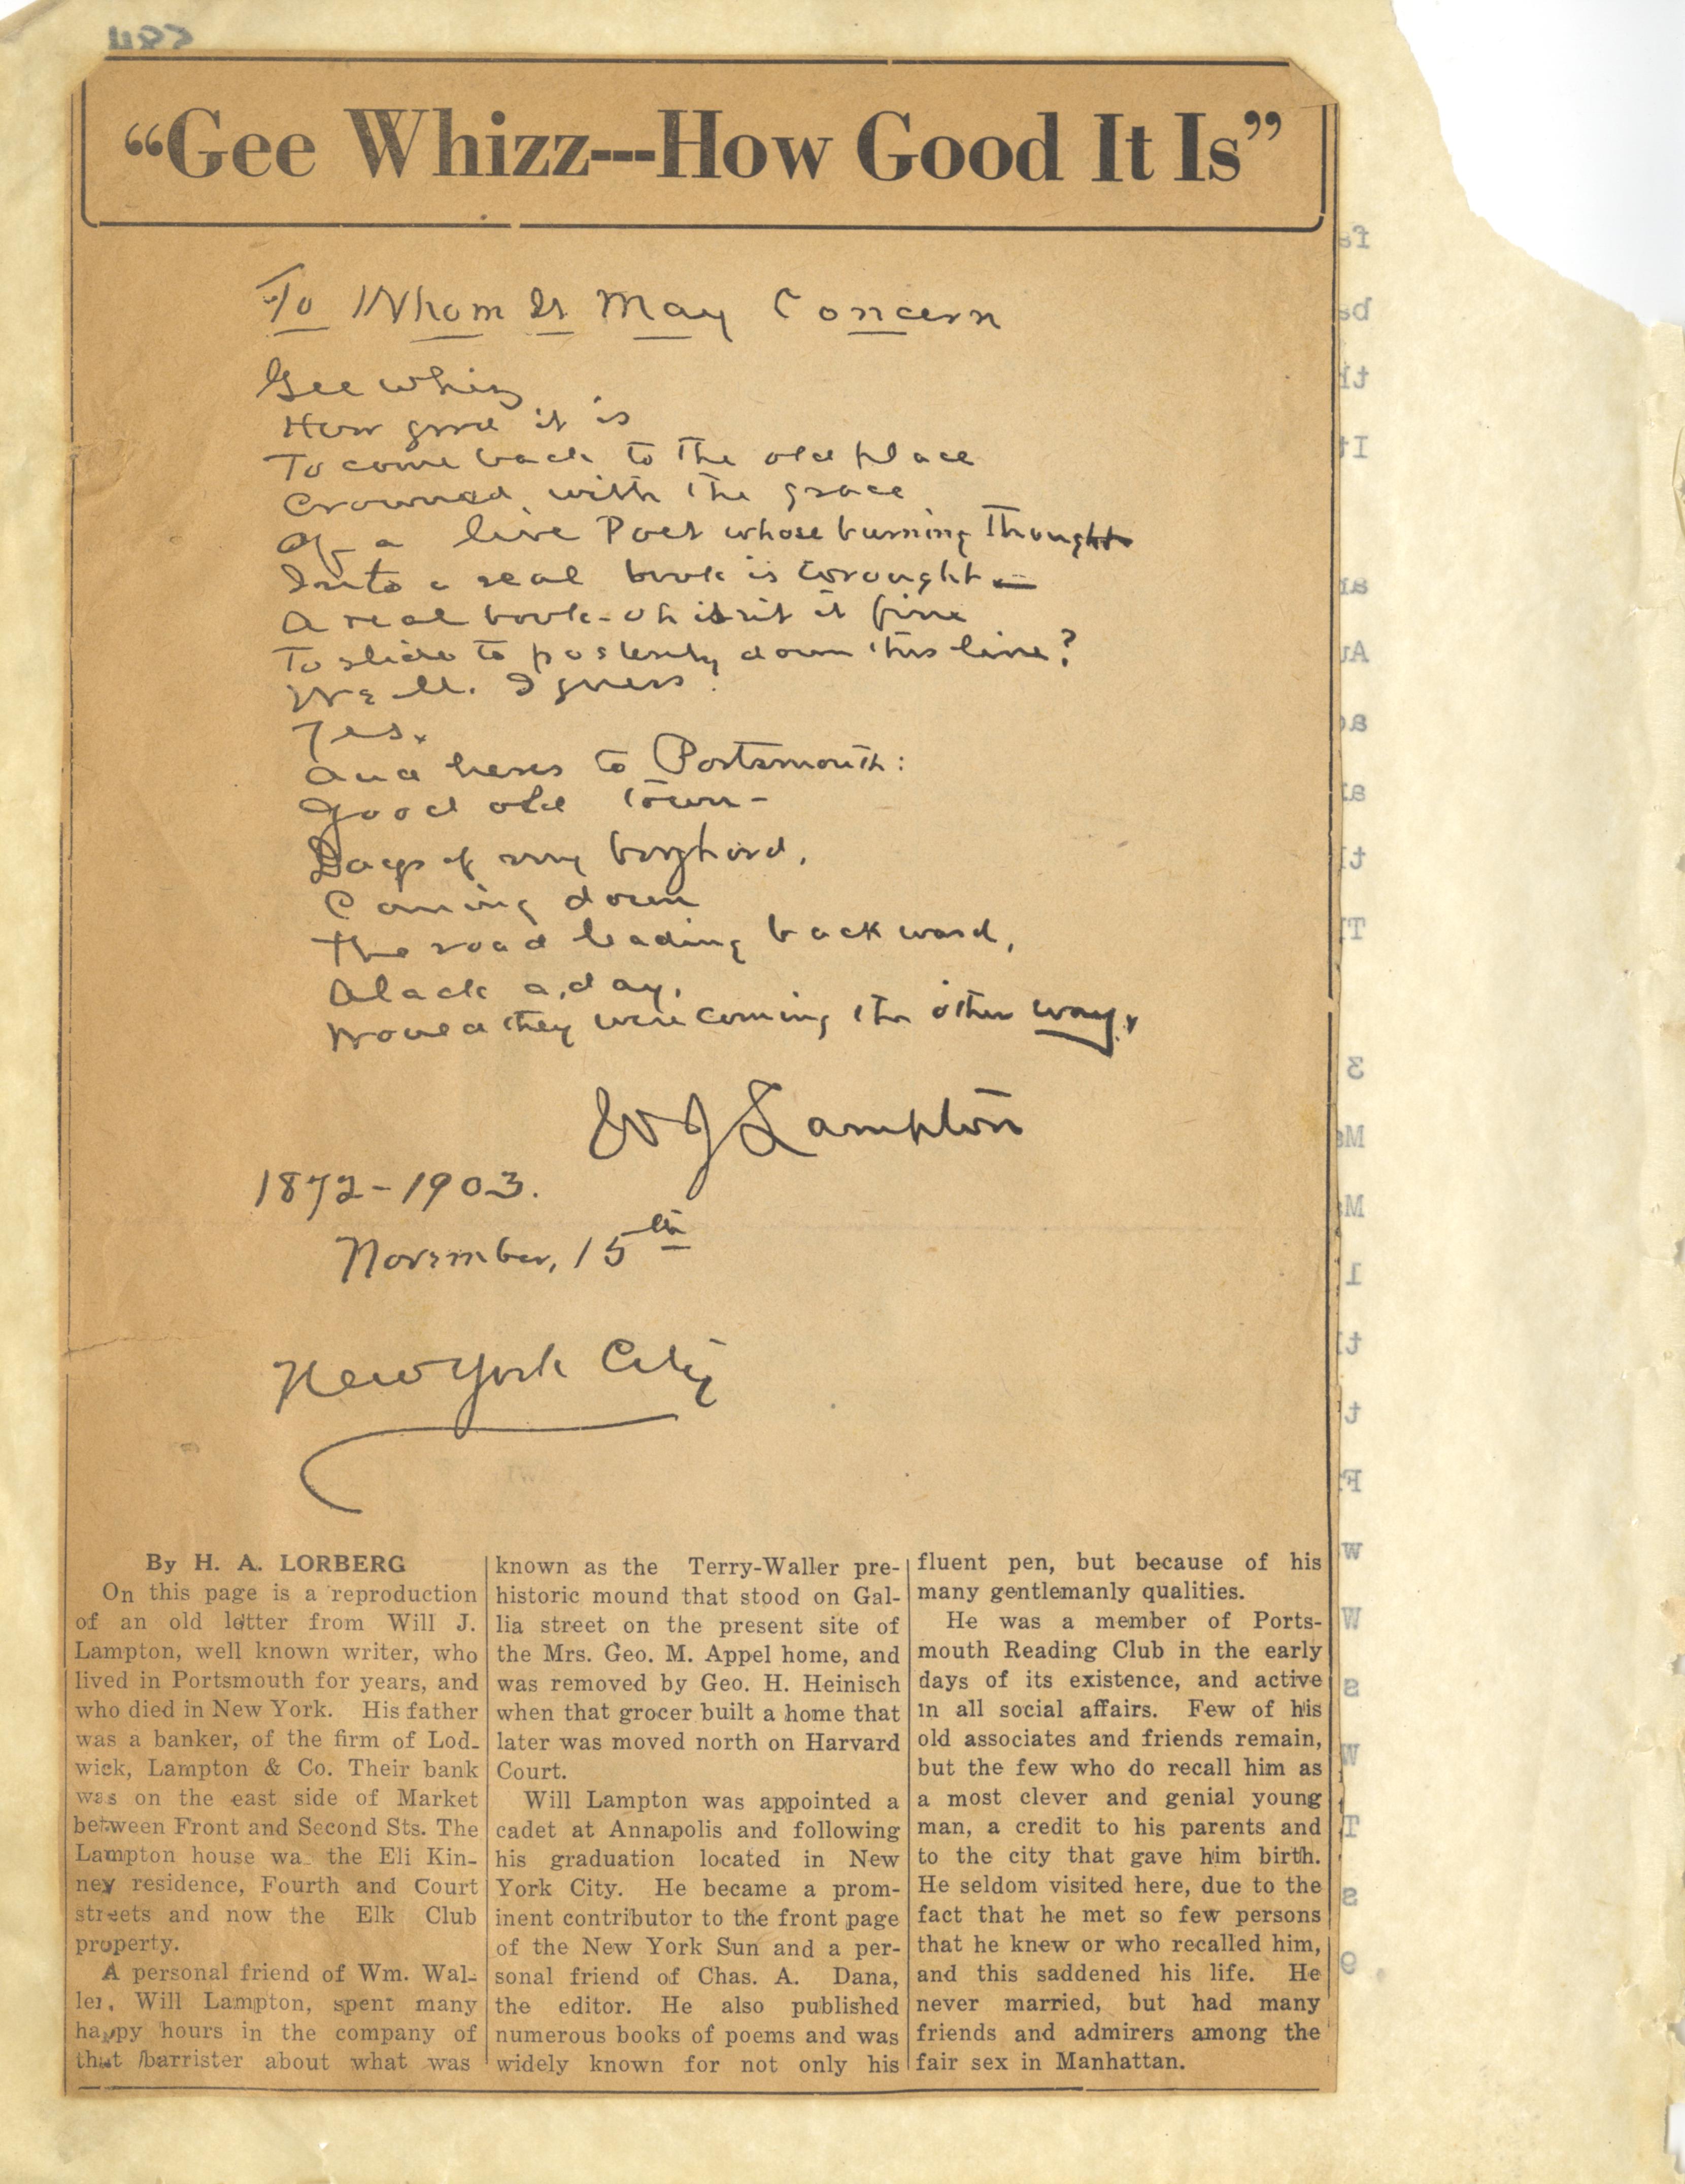 “Gee Whizz---How Good It Is”
To Whom It May Concern
Gee whiz
How good it is
To come back to the old place
Crowned with the grace
Of a live Poet whose burning thought
Into a real book is wrought —
A real book - oh isn't it fine
To slide to posterity down this line?
Well. I guess.
Yes.
And heres to Portsmouth:
Good old town -
Days of my boyhood,
Coming down
The road leading backward,
Alack a day,
Would they were coming the other way.
W J Lampton
1872-1903.
November, 15th
New York City
By H. A. LORBERG
On this page is a reproduction
of an old letter from Will J.
Lampton, well known writer, who
lived in Portsmouth for years, and
who died in New York. His father
was a banker, of the firm of Lod-
wick, Lampton & Co. Their bank
was on the east side of Market
between Front and Second Sts. The
Lampton house wa the Eli Kin-
ney residence, Fourth and Court
streets and now the Elk Club
property.
A personal friend of Wm. Wal-
ler, Will Lampton, spent many
happy hours in the company of
that barrister about what was
known as the Terry-Waller pre-
historic mound that stood on Gal-
lia street on the present site of
the Mrs. Geo. M. Appel home, and
was removed by Geo. H. Heinisch
when that grocer built a home that
later was moved north on Harvard
Court.
Will Lampton was appointed a
cadet at Annapolis and following
his graduation located in New
York City. He became a prom-
inent contributor to the front page
of the New York Sun and a per-
sonal friend of Chas. A. Dana,
the editor. He also published
numerous books of poems and was
widely known for not only his
fluent pen, but because of his
many gentlemanly qualities.
He was a member of Ports-
mouth Reading Club in the early
days of its existence, and active
in all social affairs. Few of his
old associates and friends remain,
but the few who do recall him as
a most clever and genial young
man, a credit to his parents and
to the city that gave him birth.
He seldom visited here, due to the
fact that he met so few persons
that he knew or who recalled him,
and this saddened his life. He
never married, but had many
friends and admirers among the
fair sex in Manhattan.